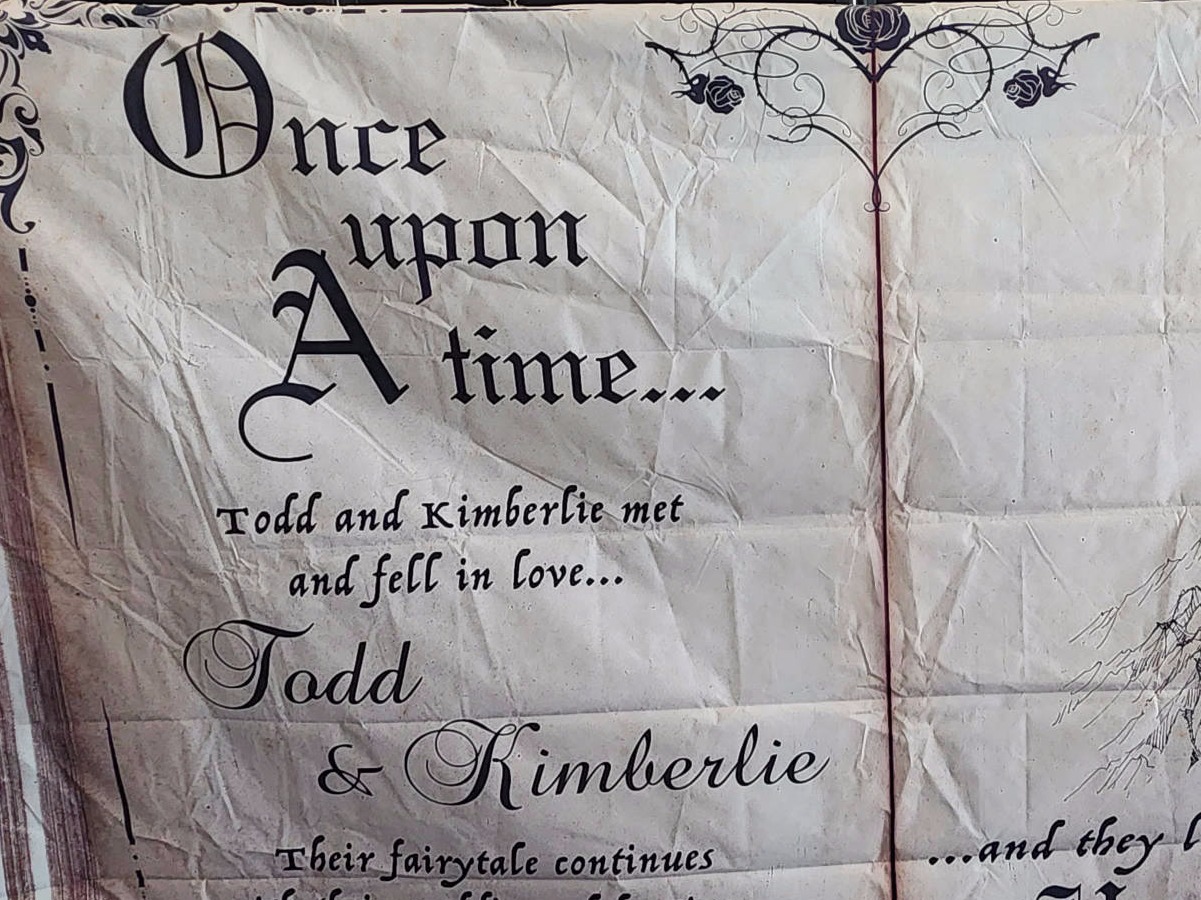 Once
upon
A time...
Todd and Kimberlie met
and fell in love...
Todd
& Kimberlie
Their fairytale continues
...and they